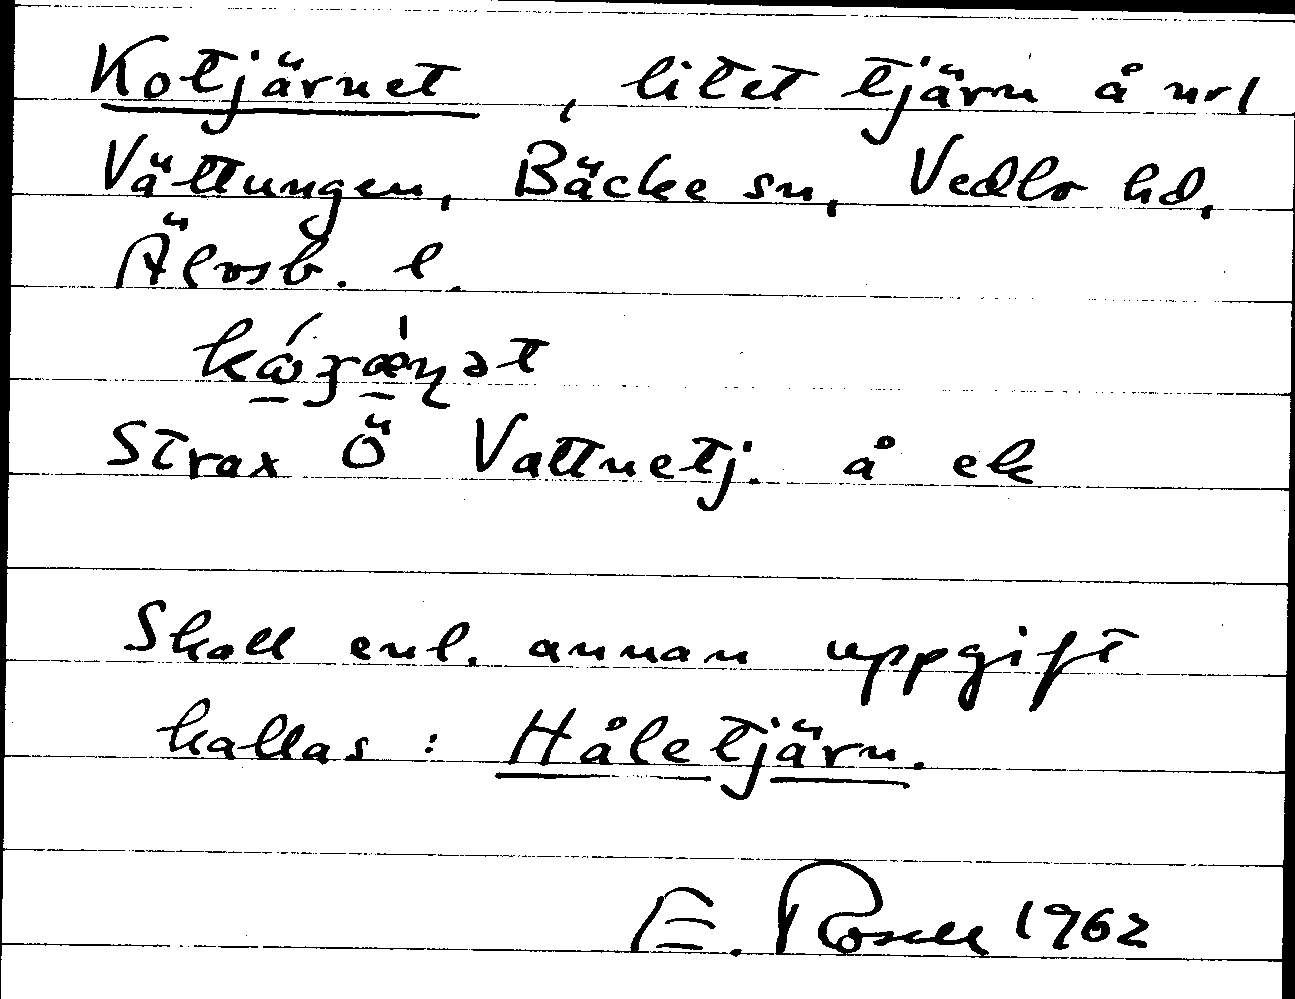 Kotjärnet, litet tjärn å nrl
Vättungen, Bäcke sn, Vedbo hd,
Älvsb. l.
Strax Ö Vattnetj. å ek
Skall enl. annan uppgift
kallas : Håletjärn.
E. Rosell 1962